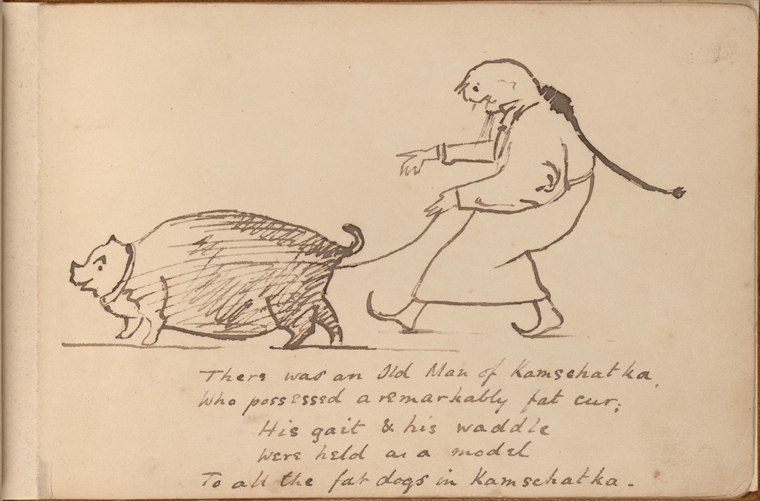 There was an Old Man of Kamschatka,
Who possessed a remarkably fat cur;
His gait & his waddle
Were held as a model
To all the fat dogs in Kamschatka.